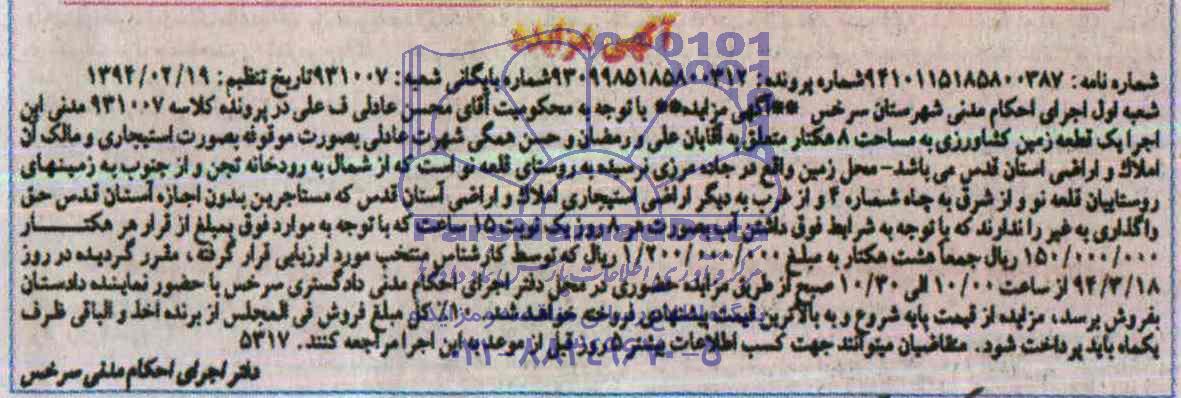 آگهی مزایده
شماره نامه: ۹۴۱۰۱۱۵۱۸۵۸۰۰۳۸۷شماره پرونده: ۹۳۰۹۹۸۵۱۸۵۸۰۰۳۱۲شماره بایگانی شعبه: ۹۳۱۰۰۷تاریخ تنظیم: ۱۳۹۴/۰۲/۱۹
شعبه اول اجرای احکام مدنی شهرستان سرخس **آگهی مزایده** با توجه به محکومیت آقای محسن عادلی ف علی در پرونده کلاسه ۹۳۱۰۰۷ مدنی این
اجرا یک قطعه زمین کشاورزی به مساحت ۸ هکتار متعلق به آقایان علی و رمضان و حسن همگی شهرت عادلی بصورت موقوفه بصورت استیجاری و مالک آن
املاک و اراضی استان قدس می باشد- محل زمین واقع در جاده مرزی نرسیده به روستای قلعه نو است که از شمال به رودخانه تجن و از جنوب به زمینهای
روستاییان قلعه نو و از شرق به چاه شماره ۴ و از غرب به دیگر اراضی استیجاری املاک و اراضی آستان قدس که مستاجرین بدون اجازه آستان قدس حق
واگذاری به غیر را ندارند که با توجه به شرایط فوق داشتن آب بصورت هر ۸ روز یک نوبت ۱۵ ساعت که با توجه به موارد فوق بمبلغ از قرار هر هکتار
۱۵۰/۰۰۰/۰۰۰ ریال جمعا هشت هکتار به مبلغ ۱/۲۰۰/۰۰۰/۰۰۰ ریال که توسط کارشناس منتخب مورد ارزیابی قرار گرفته، مقرر گردیده در روز
۹۴/۳/۱۸ از ساعت ۱۰/۰۰ الی ۱۰/۳۰ صبح از طریق مزایده حضوری در محل دفتر اجرای احکام مدنی دادگستری سرخس با حضور نماینده دادستان
بفروش برسد، مزایده از قیمت پایه شروع و به بالاترین قیمت پیشنهادی فروخته خواهد شد. ۱۰٪ کل مبلغ فروش فی المجلس از برنده اخذ و الباقی ظرف
یکماه باید پرداخت شود. متقاضیان میتوانند جهت کسب اطلاعات بیشتر ۵ روز قبل از موعد به این اجرا مراجعه کنند. ۵۳۱۷
دفتر اجرای احکام مدنی سرخس